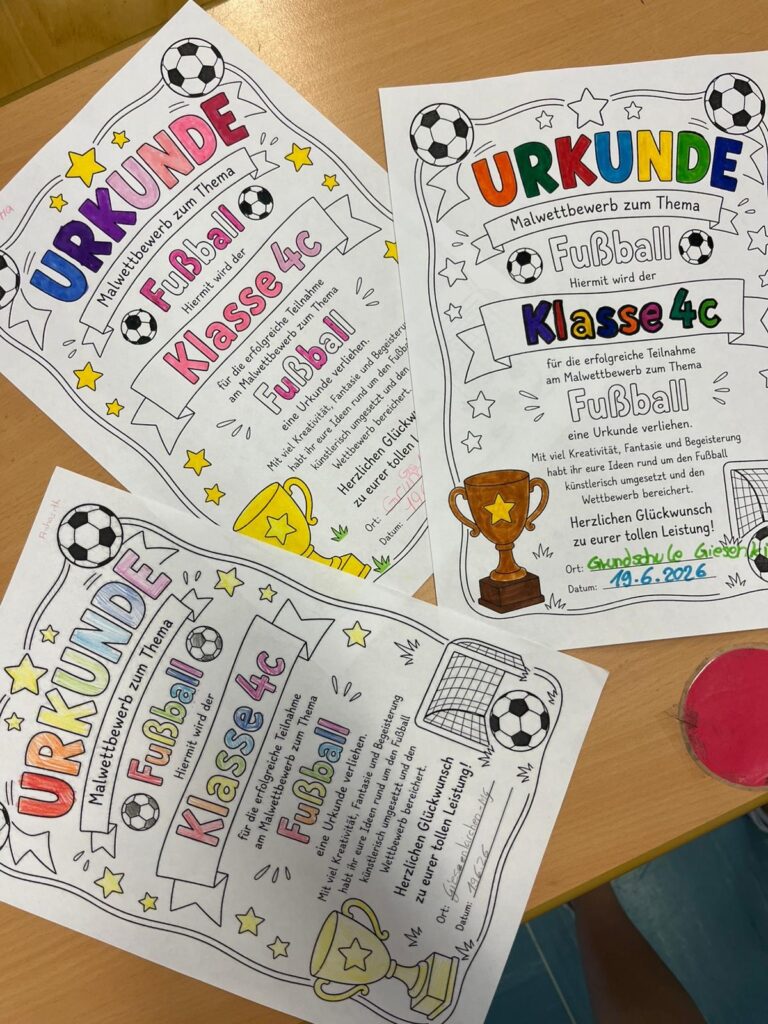 URKUNDE
Malwettbewerb zum Thema
Fußball
Hiermit wird der
Klasse 4c
für die erfolgreiche Teilnahme
am Malwettbewerb zum Thema
Fußball
eine Urkunde verliehen.
Mit viel Kreativität, Fantasie und Begeisterung
habt ihr eure Ideen rund um den Fußball
künstlerisch umgesetzt und den
Wettbewerb bereichert.
Herzlichen Glückw
zu eurer tollen
Ort:
Datum: 19
URKUNDE
Malwettbewerb zum Thema
Fußball
Hiermit wird der
Klasse 4c
für die erfolgreiche Teilnahme
am Malwettbewerb zum Thema
Fußball
eine Urkunde verliehen.
Mit viel Kreativität, Fantasie und Begeisterung
habt ihr eure Ideen rund um den Fußball
künstlerisch umgesetzt und den
Wettbewerb bereichert.
Herzlichen Glückwunsch
zu eurer tollen Leistung!
Ort: Grundschule
Datum: 19.6.2026
URKUNDE
Malwettbewerb zum Thema
Fußball
Hiermit wird der
Klasse 4c
für die erfolgreiche Teilnahme
am Malwettbewerb zum Thema
Fußball
eine Urkunde verliehen.
Mit viel Kreativität, Fantasie und Begeisterung
habt ihr eure Ideen rund um den Fußball
künstlerisch umgesetzt und den
Wettbewerb bereichert.
Herzlichen Glückwunsch
zu eurer tollen Leistung!
Ort:
Datum: 19.6.26